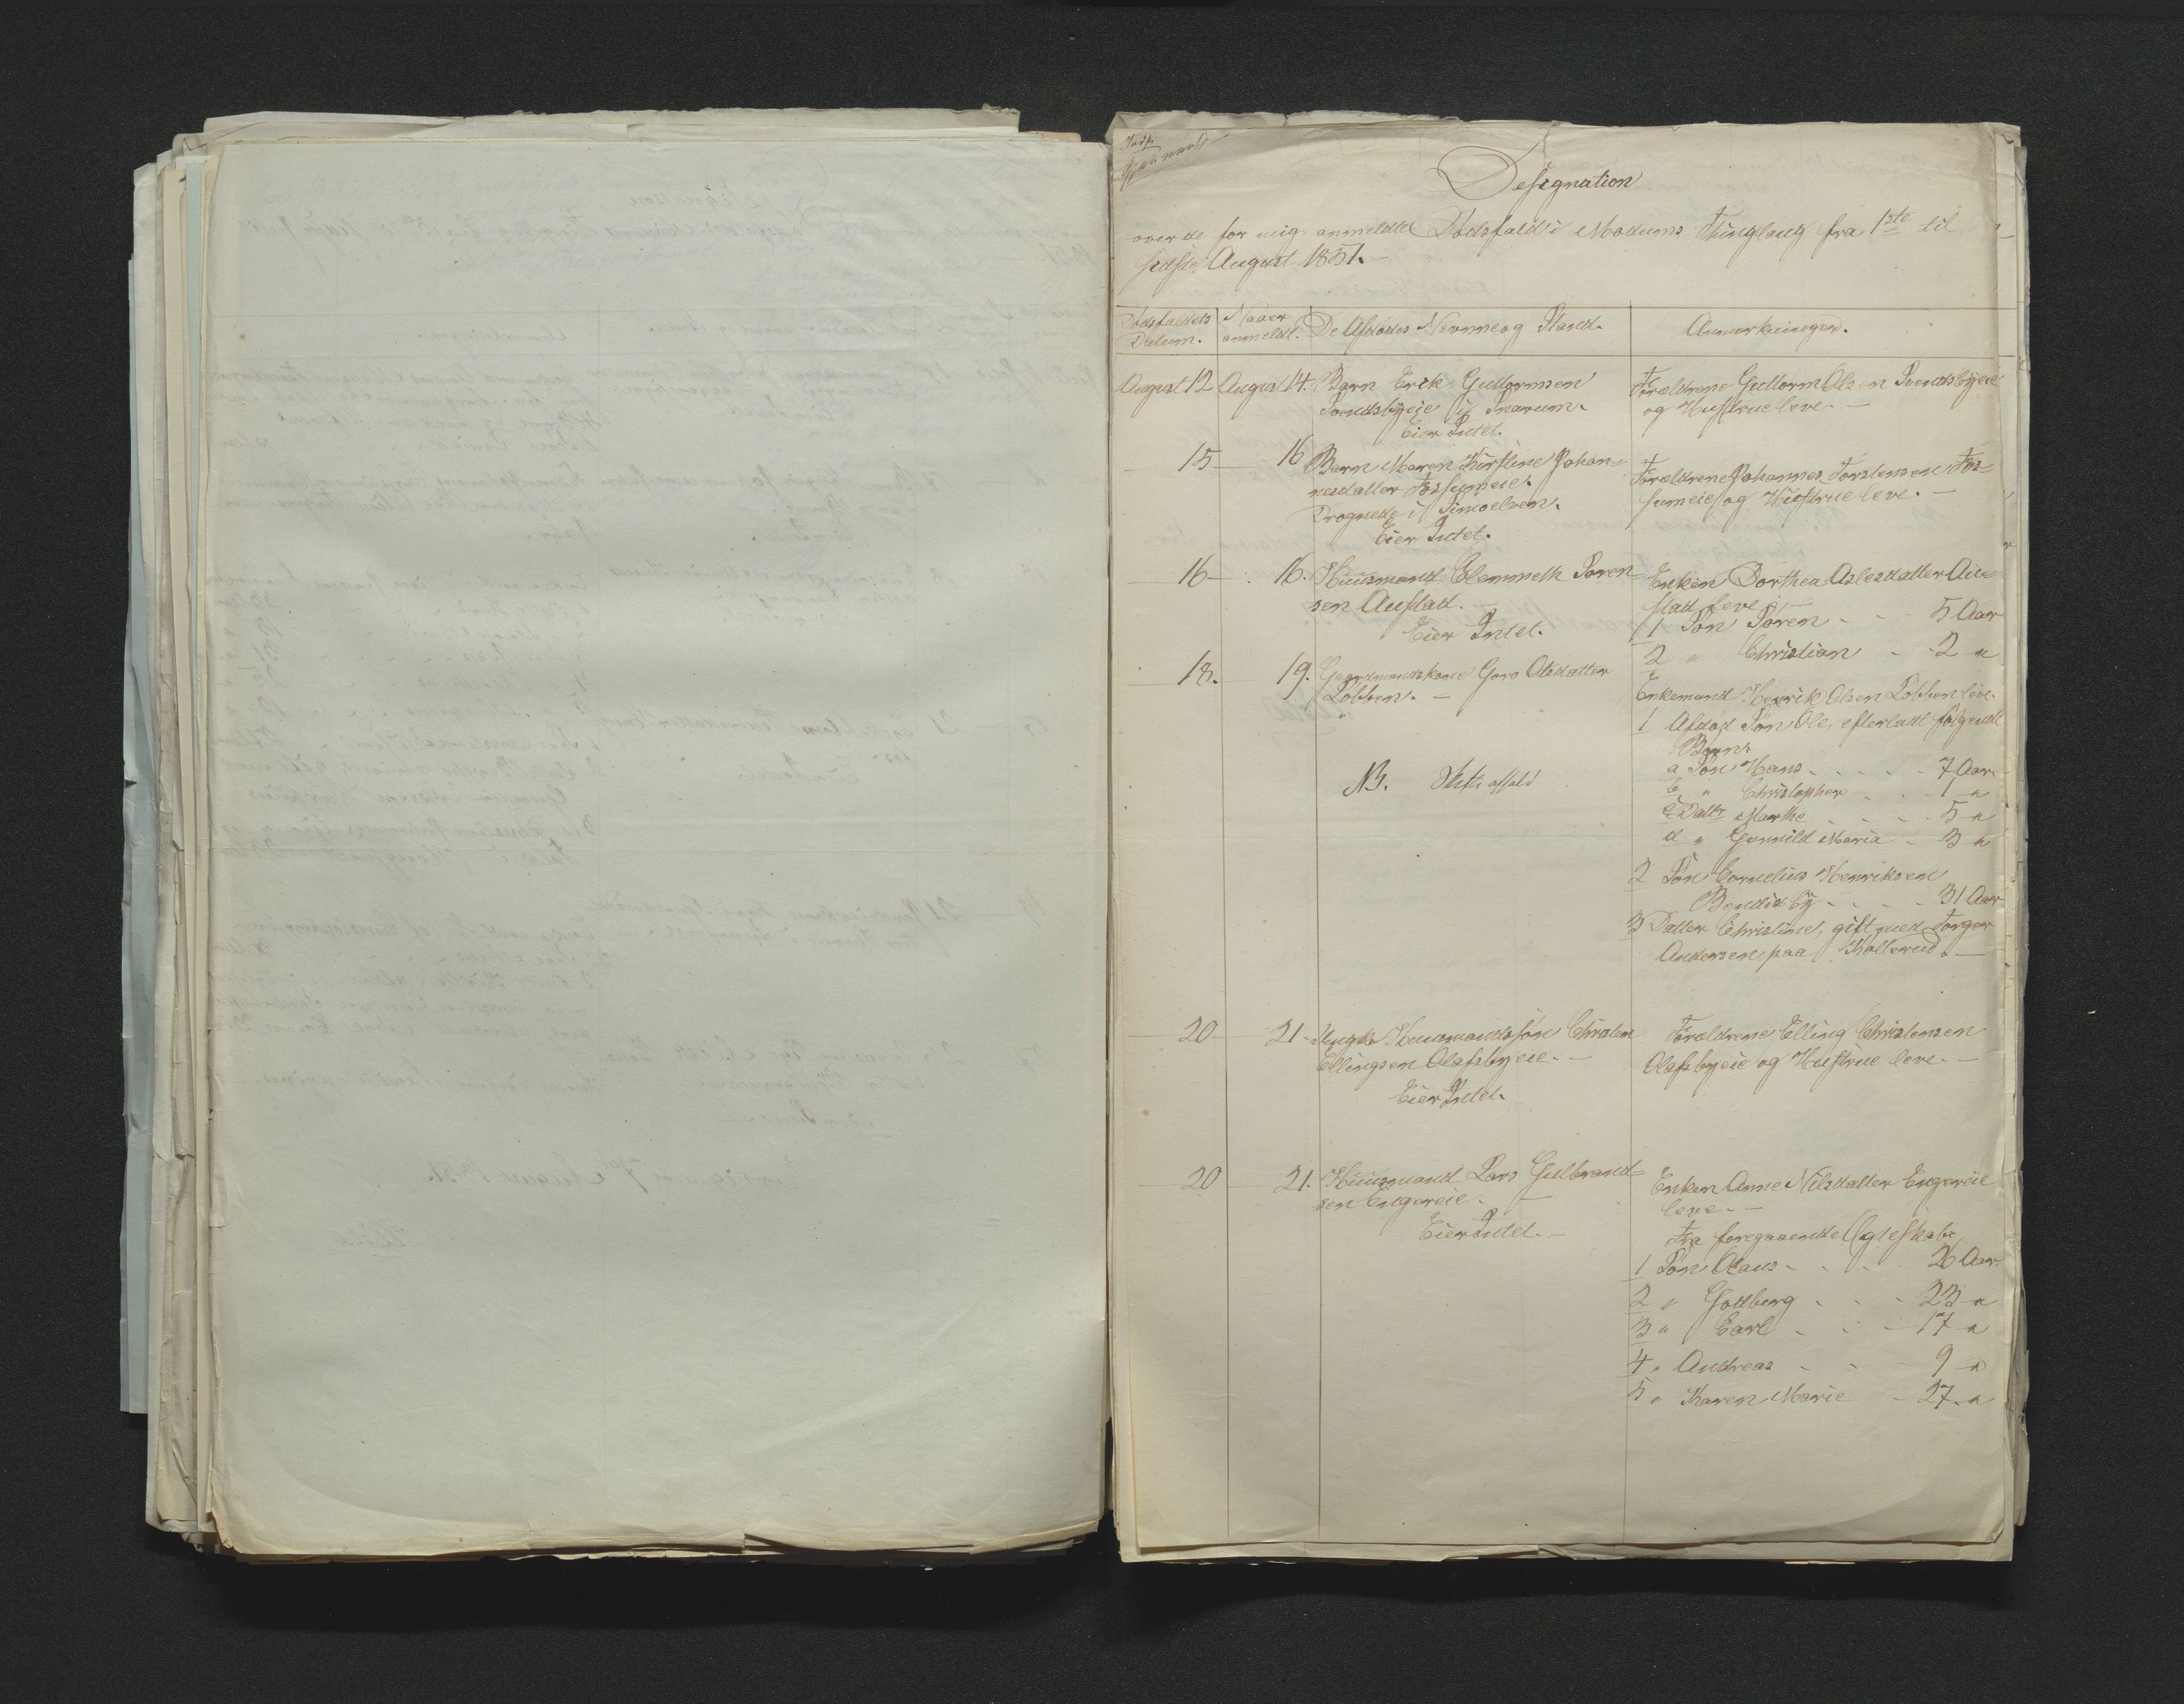 Designation
over de for mig anmeldte Dødsfald i Modums Thinglaug fra 1ste til
sidste August 1851.
Dødsfaldets Datum.
Naar anmeldt.
De Afdødes Navne og Stand.
Anmærkninger.
August 12
August 14.
Barn Erik Guttormsen
Svendsbyeie i Snarum.
Eier Intet.
Forældrene Guttorm Olsen Svendsbyeie
og Hustrue leve.
15
16
Barn Maren Kirstine Johan-
nesdatter Fossumeie.
Drognede i Simoelven.
Eier Intet.
Forældrene Johannes Torstensen Fos-
sumeie og Hustrue leve.
16
16.
Huusmand Clemmeth Soren
sen Austad.
Eier Intet.
Enken Dorthea Aslesdatter Au
stad leve
1 Søn Søren - - 5 Aar
2 " Christian - 2 "
18.
19.
Gaardmandskone Goro Olsdatter
Løbben.
NB.
Enkemand Henrik Olsen Løbben leve.
1 Afdød Søn Ole, efterladt følgende
Børn:
a Søn Hans - - - 7 Aar
b " Christopher - - 1 "
c Dattr Marthe - - - 5 "
d " Gunnild Maria - 3 "
2 Søn Cornelius Henriksen
Bendixby - - - 31 Aar
3 Datter Christine, gift med Torger
Andersen paa Kollerud.
20
21
Ungk. Huusmandssøn Christen
Ellingsen Olafsbyeie.
Eier Intet.
Forældrene Elling Christensen
Olafsbyeie og Hustrue leve.
20
21.
Huusmand Lars Gulbrand
sen Engereie.
Eier Intet.
Enken Anne Nilsdatter Engereie
leve.
Fra foregaaende Egteskab
1 Søn Olaus - - - 26 Aar
2 " Gottberg - - - 23 "
3 " Carl - - - 17 "
4 " Andreas - - 9 "
5 " Karen Marie - 27 "